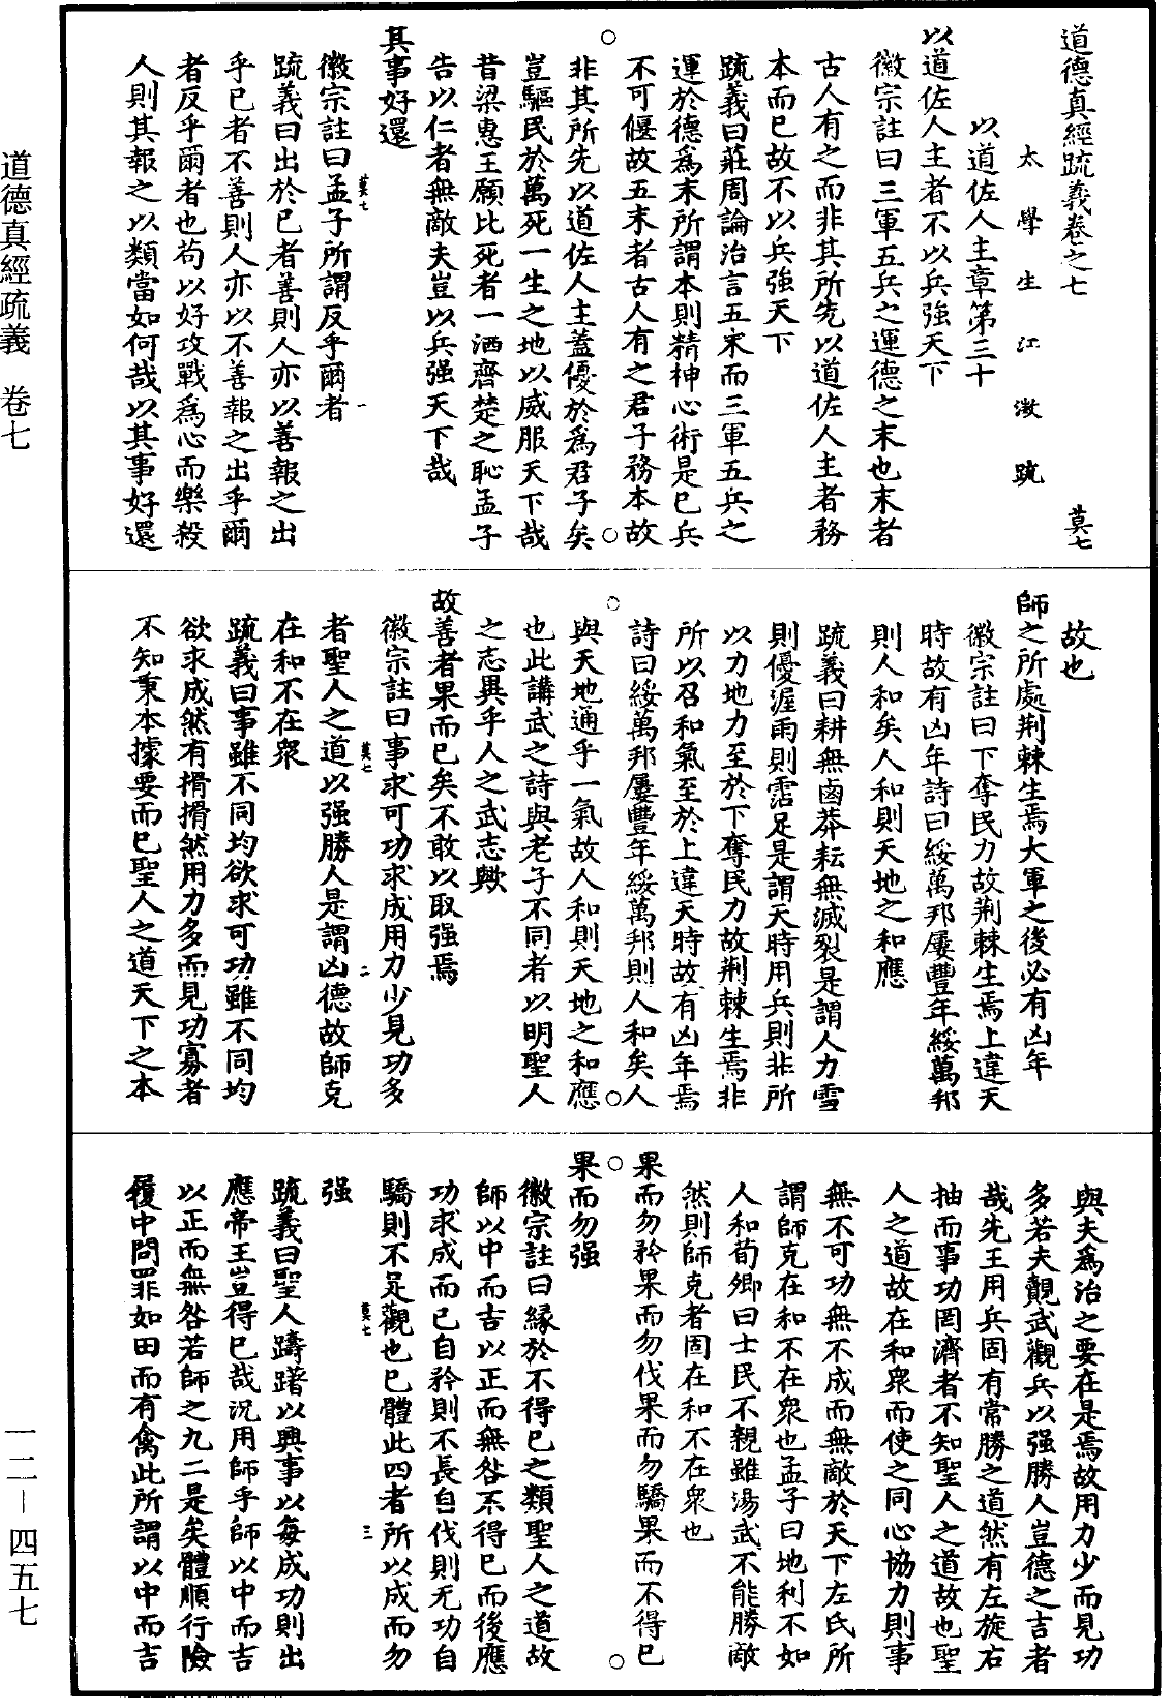 道德真經疏義卷之七　莫七
太學生江澂疏
以道佐人主章第三十
以道佐人主者不以兵強天下
徽宗註曰三軍五兵之運德之末也末者
古人有之而非其所先以道佐人主者務
本而已故不以兵強天下
疏義曰莊周論治言五末而三軍五兵之
運於德爲末所謂本則精神心術是已兵
不可偃故五末者古人有之君子務本故
非其所先以道佐人主蓋優於爲君子矣
豈驅民於萬死一生之地以威服天下哉
昔梁惠王願比死者一洒齊楚之恥孟子
告以仁者無敵夫豈以兵强天下哉
其事好還
徽宗註曰孟子所謂反乎爾者
莫七　一
疏義曰出於己者善則人亦以善報之出
乎己者不善則人亦以不善報之出乎爾
者反乎爾者也苟以好攻戰爲心而樂殺
人則其報之以類當如何哉以其事好還
故也
師之所處荆棘生焉大軍之後必有凶年
徽宗註曰下奪民力故荆棘生焉上違天
時故有凶年詩曰綏萬邦屢豐年綏萬邦
則人和矣人和則天地之和應
疏義曰耕無鹵莽耘無滅裂是謂人力雪
則優渥雨則霑足是謂天時用兵則非所
以力地力至於下奪民力故荆棘生焉非
所以召和氣至於上違天時故有凶年焉
詩曰綏萬邦屢豐年綏萬邦則人和矣人
與天地通乎一氣故人和則天地之和應
也此講武之詩與老子不同者以明聖人
之志異乎人之武志歟
故善者果而已矣不敢以取强焉
徽宗註曰事求可功求成用力少見功多
莫七　二
者聖人之道以强勝人是謂凶德故師克
在和不在衆
疏義曰事雖不同均欲求可功雖不同均
欲求成然有搰搰然用力多而見功寡者
不知秉本據要而已聖人之道天下之本
與夫爲治之要在是焉故用力少而見功
多若夫覿武觀兵以强勝人豈德之吉者
哉先王用兵固有常勝之道然有左旋右
抽而事功罔濟者不知聖人之道故也聖
人之道故在和衆而使之同心協力則事
無不可功無不成而無敵於天下左氏所
謂師克在和不在衆也孟子曰地利不如
人和荀卿曰士民不親雖湯武不能勝敵
然則師克者固在和不在衆也
果而勿矜果而勿伐果而勿驕果而不得已
果而勿强
徽宗註曰緣於不得已之類聖人之道故
師以中而吉以正而無咎不得已而後應
功求成而已自矜則不長自伐則无功自
驕則不足觀也已體此四者所以成而勿
莫七　三
强
疏義曰聖人躊躇以興事以每成功則出
應帝王豈得已哉況用師乎師以中而吉
以正而無咎若師之九二是矣體順行險
履中問罪如田而有禽此所謂以中而吉
道德真經疏義　卷七
一二－四五七